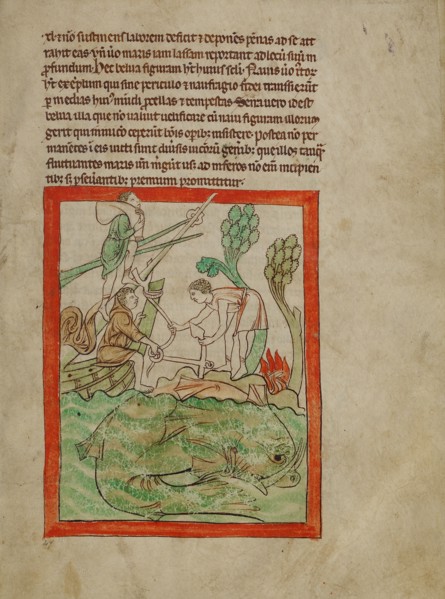 & nō sustinens laborem deficit & deponēs pēnas ad se att
rahit eas. ūo maris iam lassam reportant ad locū suū in
pfundum. Hec belua figuram ht huius seli. Nauis ūo
ht exēplum qui sine periculo & naufragio fidei transierūt
p medias huiꝰ mūdi pcellas & tempestas. Serra uero idest
belua illa que nō ualuit uelificare cū naui figuram illorum
gerit qui ceperūt bōis opib; insistere. Postea nō per
manētes ī eis uicti sunt diuisis uicioꝝ genib; que illos tanq̄
fluctuantes maris ad inferos nō em̄ incipien
tib; s; pseuantib; premium promittitur.